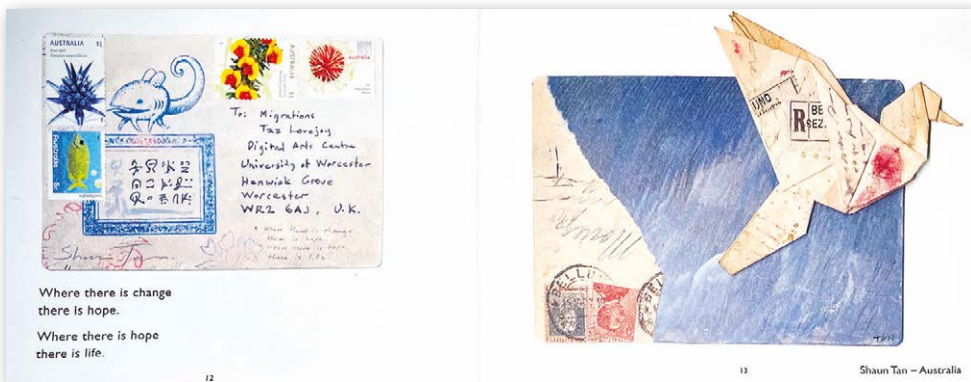 AUSTRALIA $1
AUSTRALIA $1
australia
Australia
To: Migrations
Taz Lovejoy
Digital Arts Centre
University of Worcester
Henwick Grove
Worcester
WR2 6AJ, U.K.
* Where there is change
there is hope
where there is hope
there is life
Shaun Tan.
Where there is change
there is hope.
Where there is hope
there is life.
12
R BE
SEZ.
BELLU
13
Shaun Tan – Australia